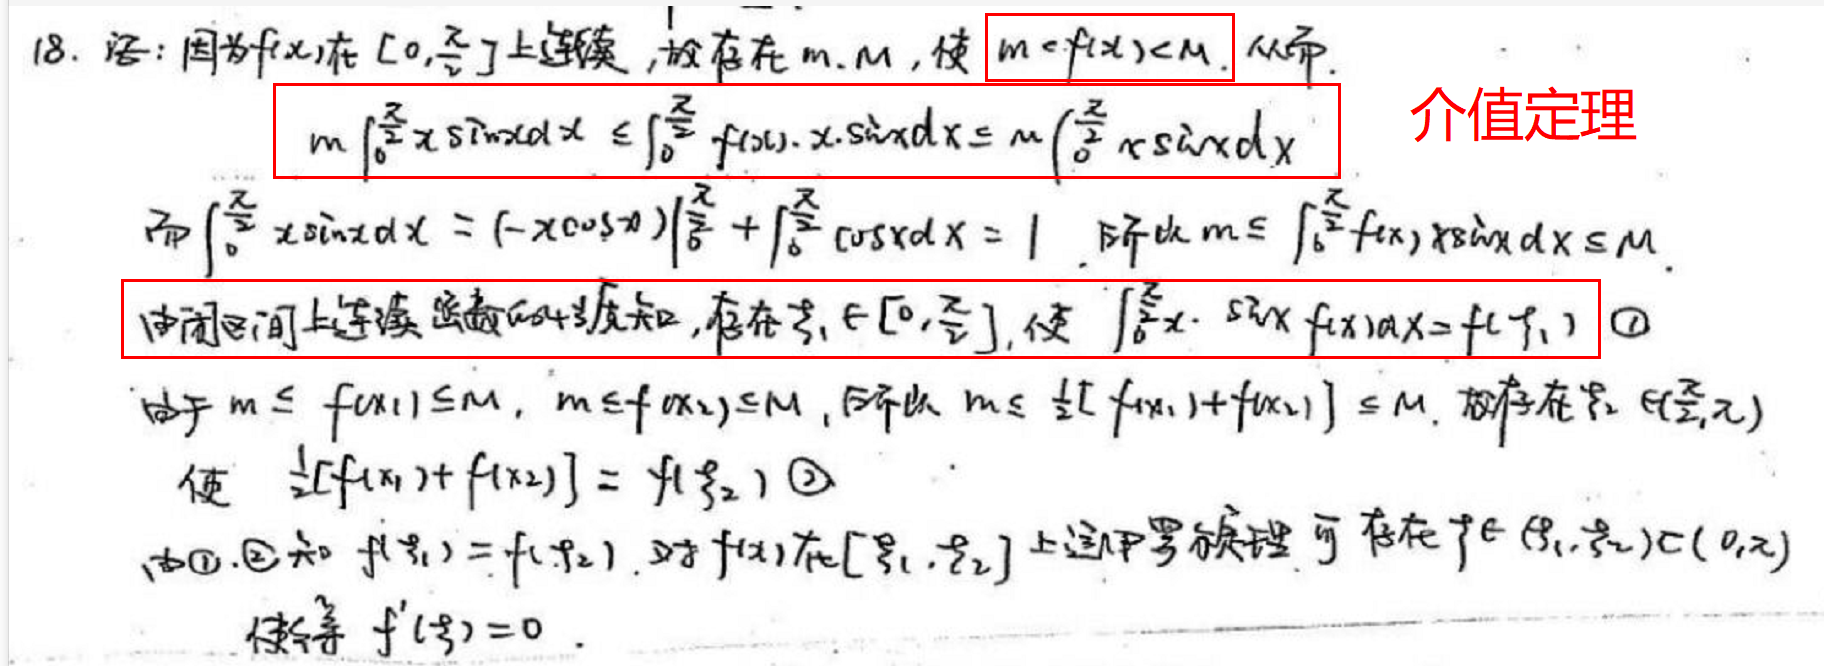 18. 证：因为f(x)在[0,π/2]上连续，故存在m.M，使 m<f(x)<M. 从而.
介值定理
m∫₀^{π/2} x sinxdx ≤ ∫₀^{π/2} f(x).x.sinxdx ≤ M∫₀^{π/2} x sinxdx
而∫₀^{π/2} x sinxdx = (-xcosx)|₀^{π/2} + ∫₀^{π/2} cosxdx = 1. 所以 m≤ ∫₀^{π/2} f(x)xsinxdx ≤ M.
由闭区间上连续函数的性质知，存在ξ₁∈[0,π/2]，使 ∫₀^{π/2} x. sinx f(x)dx = f(ξ₁) ①
由于 m≤ f(x₁)≤M, m≤f(x₂)≤M, 所以 m≤ ½[f(x₁)+f(x₂)] ≤ M. 故存在ξ₂∈(π/2,π)
使 ½[f(x₁)+f(x₂)] = f(ξ₂) ②
由①.②知 f(ξ₁)=f(ξ₂). 对f(x)在[ξ₁,ξ₂]上运用罗尔定理 可 存在ξ∈(ξ₁,ξ₂)⊂(0,π)
使得 f'(ξ)=0.